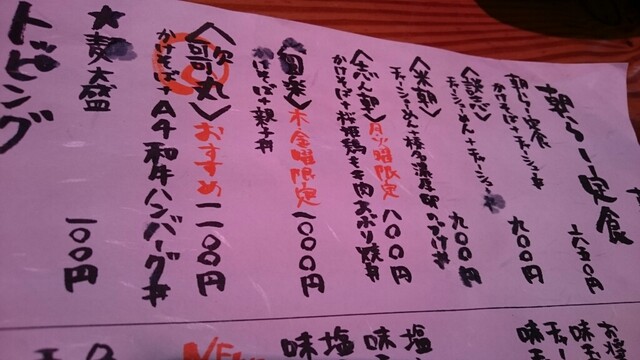 朝らー定食 六五〇円
朝らー定食 九〇〇円
かけそば+チャーシュー丼
〈談志〉 九〇〇円
チャーシューめん+チャーシュー
〈米朝〉 八〇〇円
〈志ん朝〉月火曜限定
かけそば+桜姫鶏もも肉あぶり焼丼
木・金曜限定 一〇〇〇円
かけそば+親子丼
〈歌丸〉おすすめ 一一〇〇円
かけそば+A4和牛ハンバーグ丼
★麺大盛 一〇〇円
トッピング
味
味
塩
味
塩
味
NEW